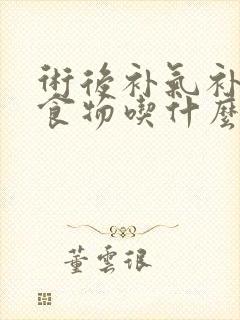 術後补氣补
食物喫什麼
董雲很